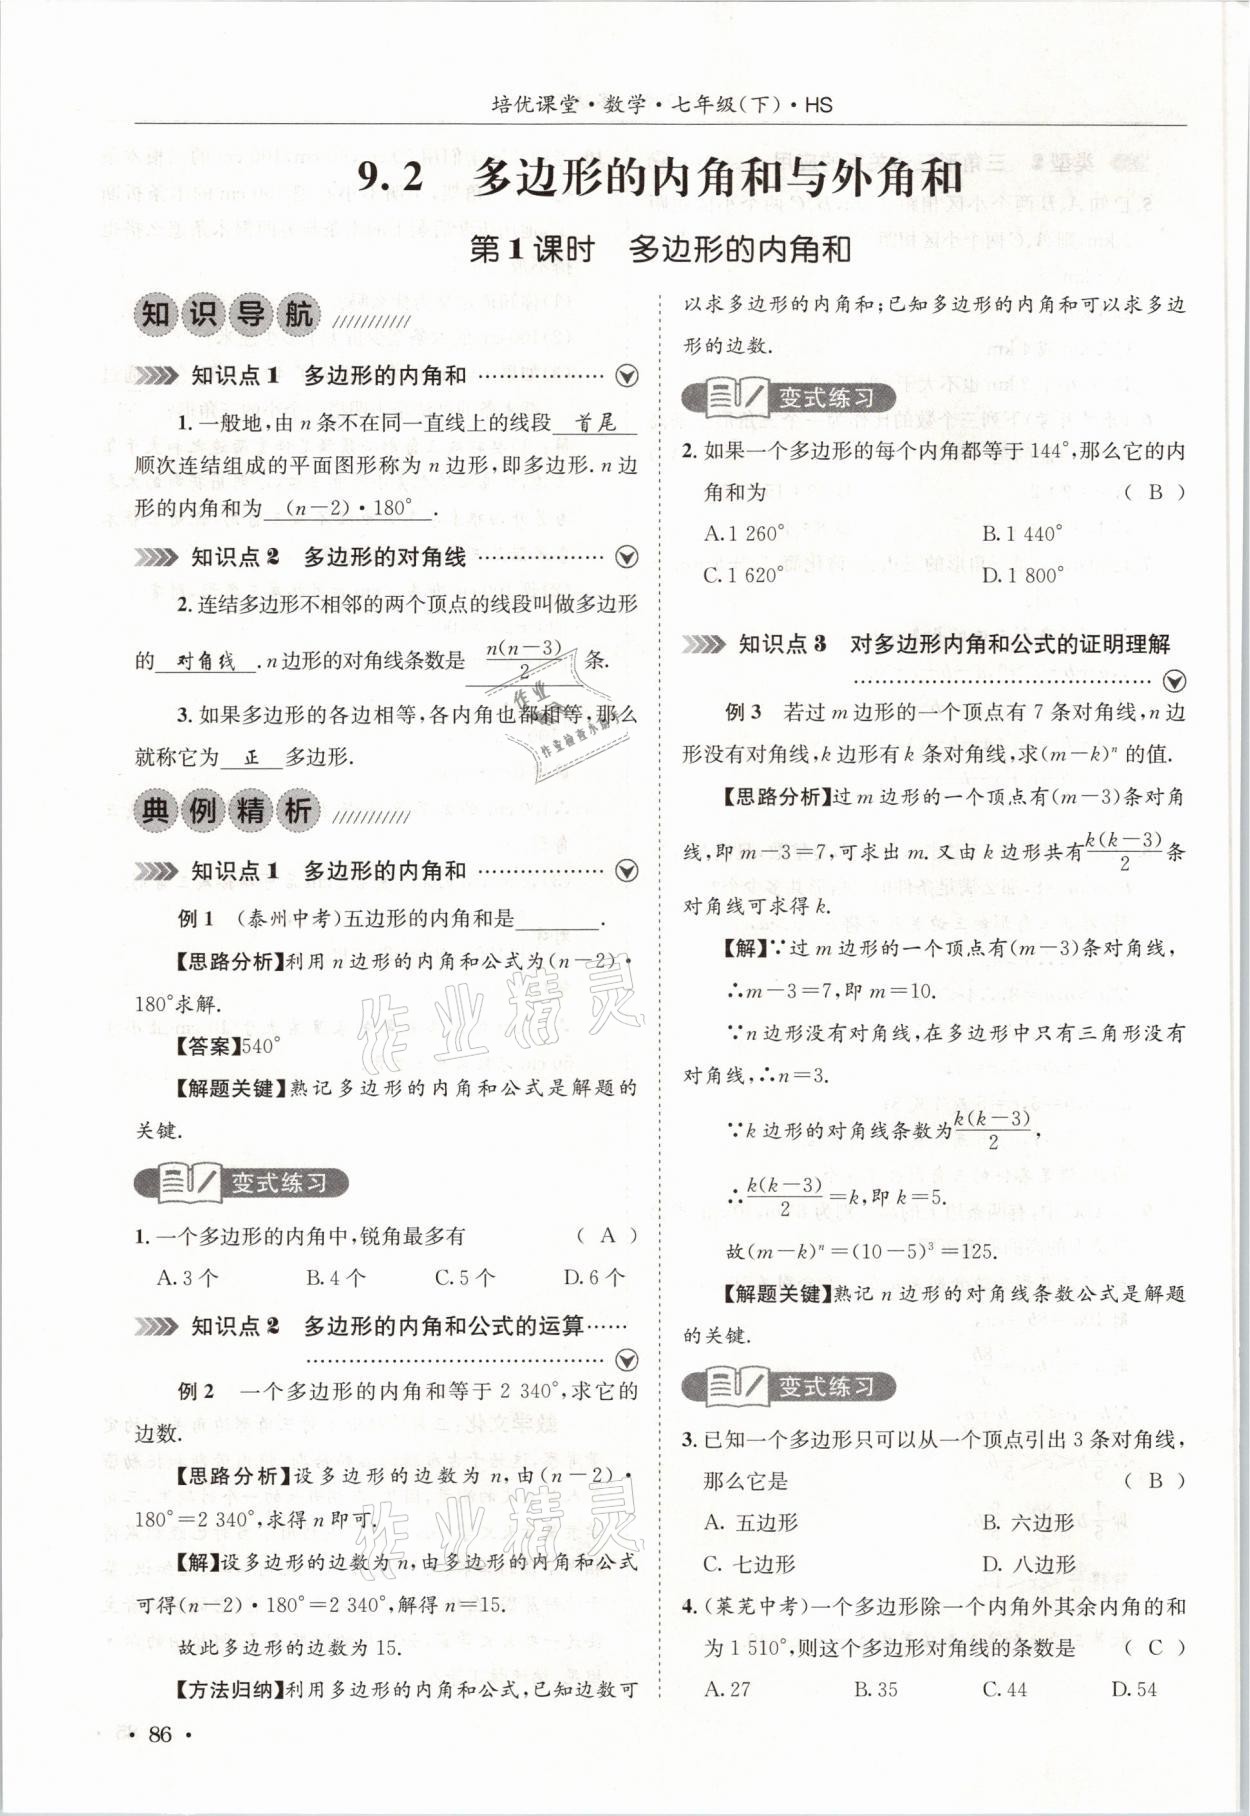 培优课堂·数学·七年级(下)·HS
9.2 多边形的内角和与外角和
第1课时 多边形的内角和
知识导航
知识点1 多边形的内角和
1.一般地,由n条不在同一直线上的线段 首尾
顺次连结组成的平面图形称为n边形,即多边形.n边
形的内角和为 (n-2)·180° .
知识点2 多边形的对角线
2.连结多边形不相邻的两个顶点的线段叫做多边形
的 对角线 .n边形的对角线条数是 n(n-3)/2 条.
3.如果多边形的各边相等,各内角也都相等,那么
就称它为 正 多边形.
典例精析
知识点1 多边形的内角和
例1 (泰州中考)五边形的内角和是________.
【思路分析】利用n边形的内角和公式为(n-2)·
180°求解.
【答案】540°
【解题关键】熟记多边形的内角和公式是解题的
关键.
变式练习
1.一个多边形的内角中,锐角最多有 ( A )
A.3个 B.4个 C.5个 D.6个
知识点2 多边形的内角和公式的运算……
例2 一个多边形的内角和等于2 340°,求它的
边数.
【思路分析】设多边形的边数为n,由(n-2)·
180°=2 340°,求得n即可.
【解】设多边形的边数为n,由多边形的内角和公式
可得(n-2)·180°=2 340°,解得n=15.
故此多边形的边数为15.
【方法归纳】利用多边形的内角和公式,已知边数可
·86·
以求多边形的内角和;已知多边形的内角和可以求多边
形的边数.
变式练习
2.如果一个多边形的每个内角都等于144°,那么它的内
角和为 ( B )
A.1 260° B.1 440°
C.1 620° D.1 800°
知识点3 对多边形内角和公式的证明理解
例3 若过m边形的一个顶点有7条对角线,n边
形没有对角线,k边形有k条对角线,求(m-k)ⁿ的值.
【思路分析】过m边形的一个顶点有(m-3)条对角
线,即m-3=7,可求出m.又由k边形共有k(k-3)/2条
对角线可求得k.
【解】∵过m边形的一个顶点有(m-3)条对角线,
∴m-3=7,即m=10.
∵n边形没有对角线,在多边形中只有三角形没有
对角线,∴n=3.
∵k边形的对角线条数为k(k-3)/2,
∴k(k-3)/2=k,即k=5.
故(m-k)ⁿ=(10-5)³=125.
【解题关键】熟记n边形的对角线条数公式是解题
的关键.
变式练习
3.已知一个多边形只可以从一个顶点引出3条对角线,
那么它是 ( B )
A. 五边形 B. 六边形
C. 七边形 D. 八边形
4.(莱芜中考)一个多边形除一个内角外其余内角的和
为1 510°,则这个多边形对角线的条数是 ( C )
A.27 B.35 C.44 D.54
作业精灵
作业精灵
作业
作业检查小助手